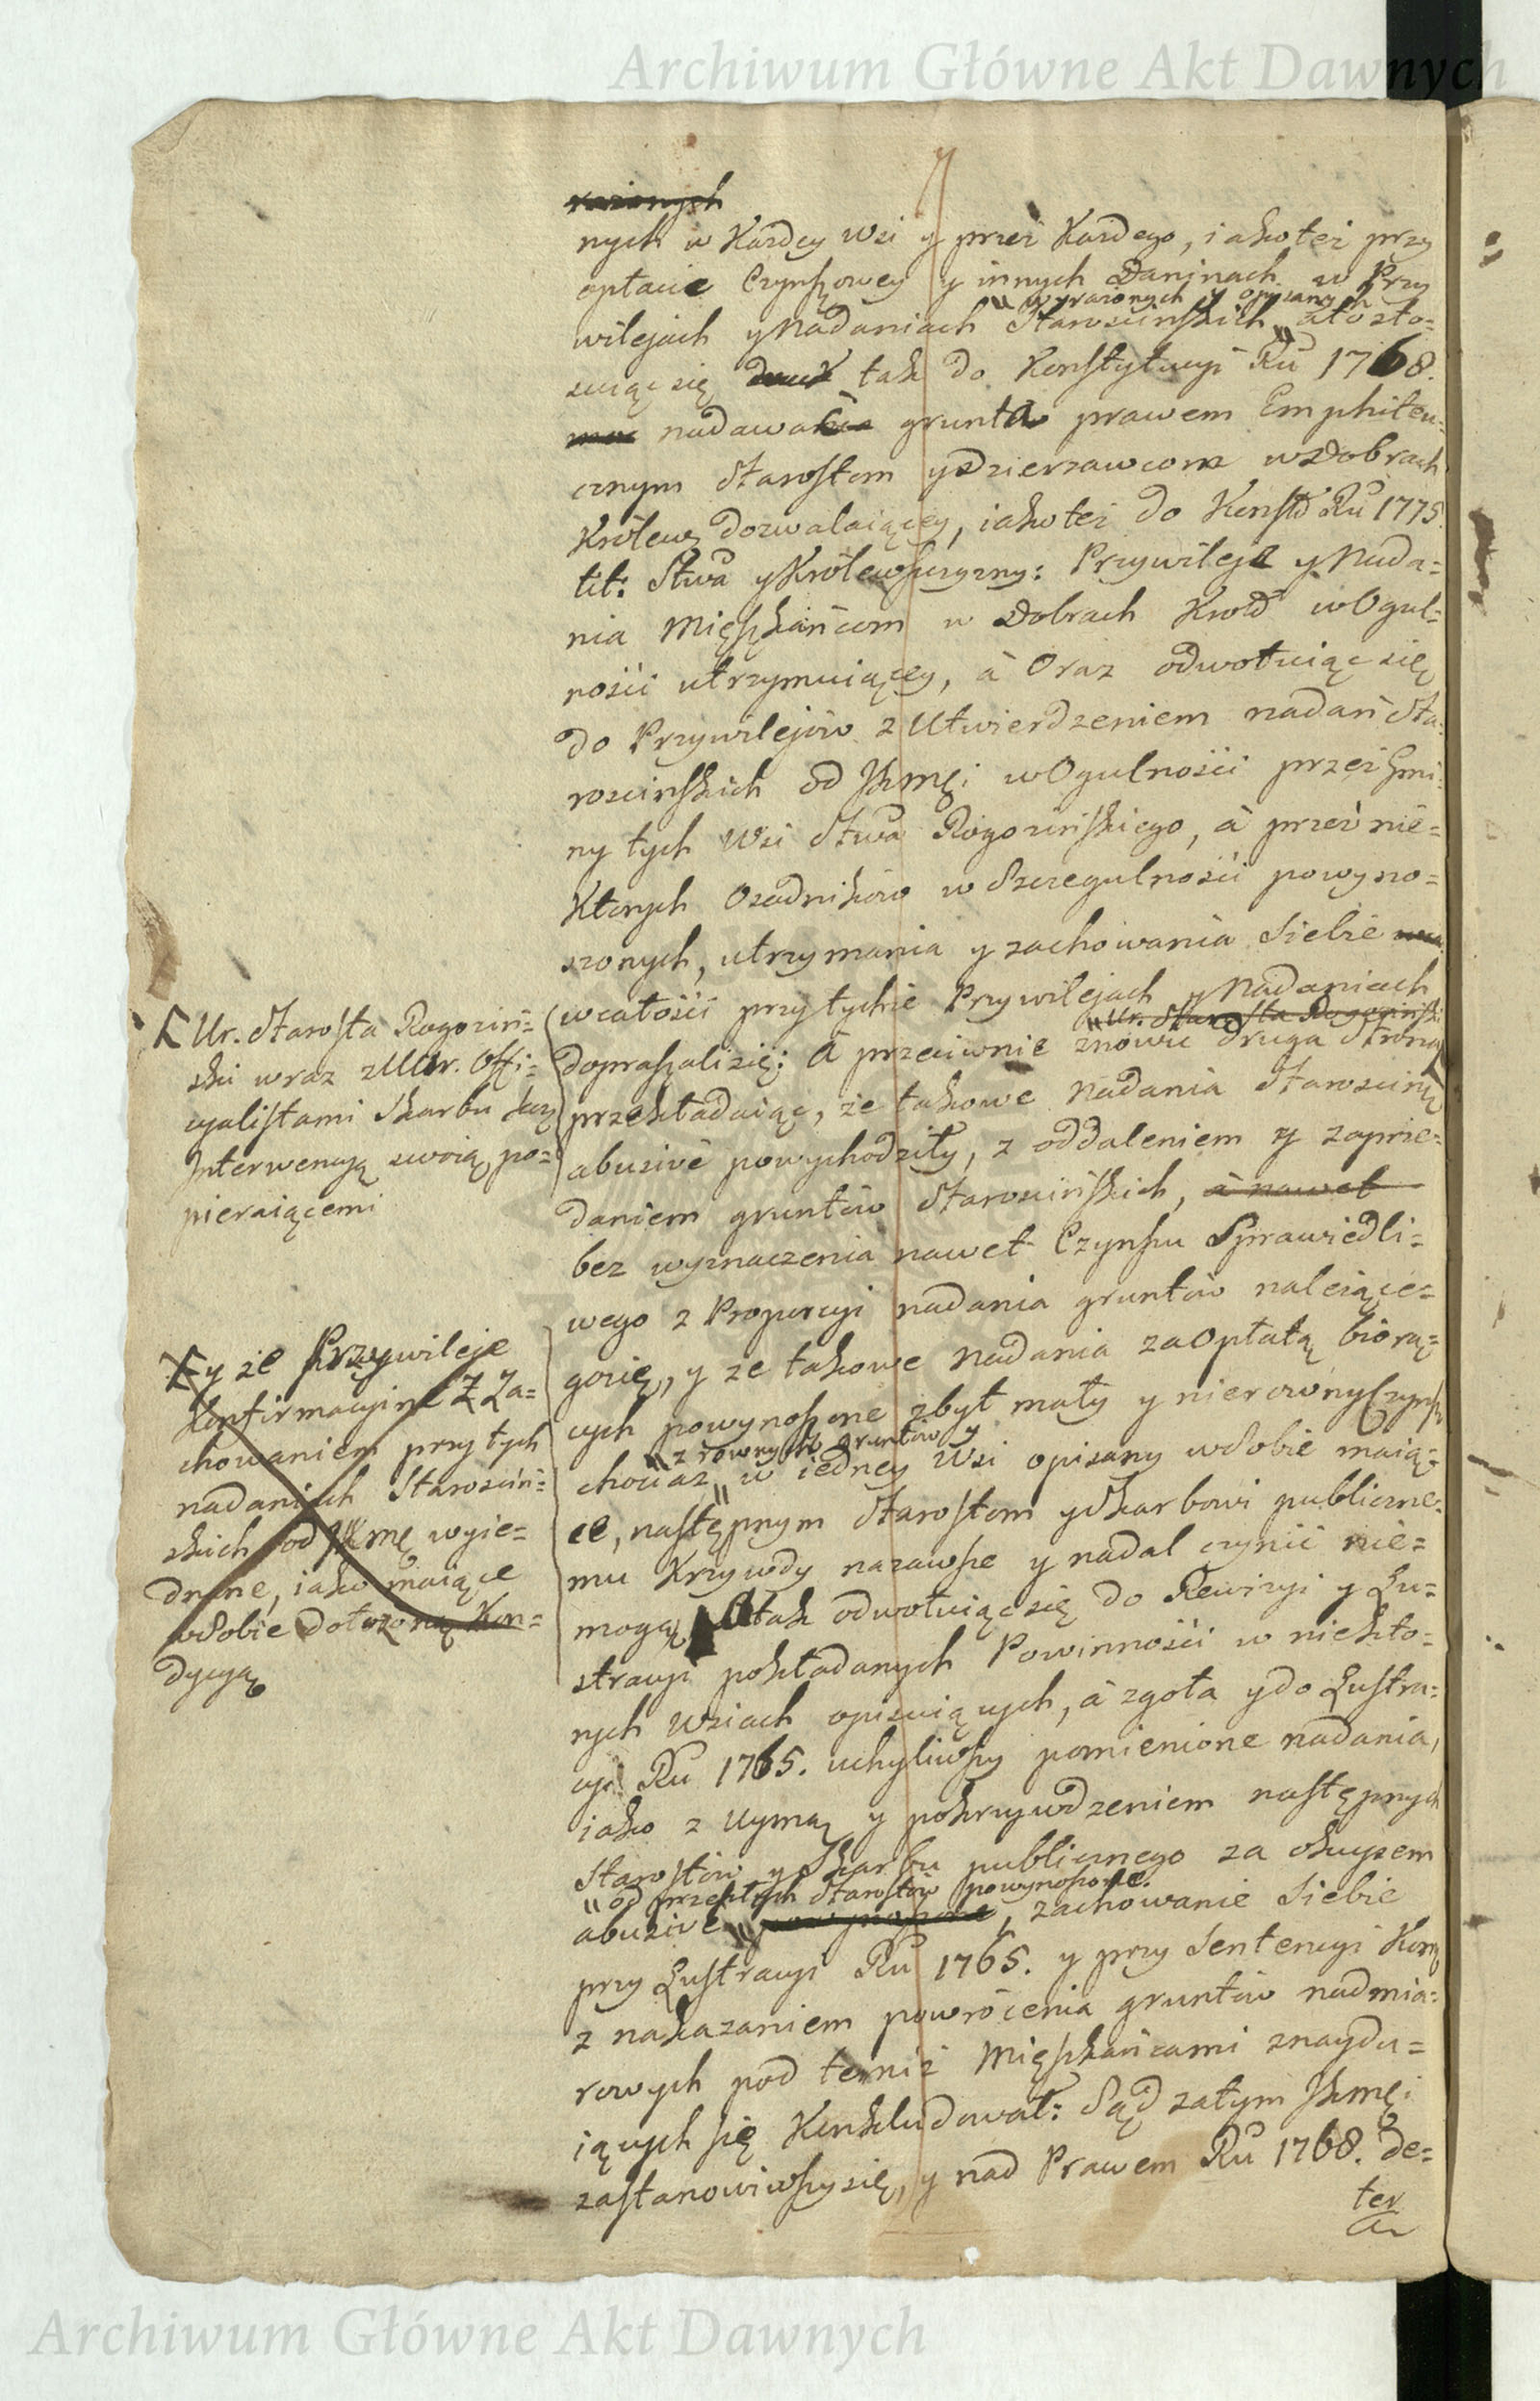 Archiwum Główne Akt Dawnych
nych w Kazdey Wsi y przez Kazdego, iakotez przy
opłacie Czynszowey y innych Daninach w Przy
"wyrażonych y opisanych
wilejach y Nadaniach Starościnskich "a stoso=
suiąc się tak do Konstytucyi Ru 1768.
nadawać grunta prawem Emphiteu=
cznym Starostom y Dzierzawcom w Dobrach
Królews dozwalaiącey, iakotez do Konst Ru 1775.
tit: Stwa y Krolewszczyzny: Przywileje y Nada=
nia Mięszkańcom w Dobrach Krol w Ogul=
ności utrzymuiącey, à Oraz odwołuiąc się
do Przywilejów z Utwierdzeniem nadań Sta=
rościnskich od JKMci w Ogulności przez Gmi=
ny tych Wsi Stwa Rogozińskiego, à przez nie=
ktorych Osadników w Szczegulności powyno=
szonych, utrzymania y zachowania Siebie
w całości przy tychże Przywilejach y Nadaniach
"Ur. Starosta Rogozinski
dopraszali się; A przeciwnie znowu druga strona
przekładaiąc, że takowe nadania Starościnś
abusivè powychodziły, z oddaleniem y zaprze=
daniem gruntów Starościńskich, à nawet
bez wyznaczenia nawet Czynszu Sprawiedli=
wego z Proporcyi nadania gruntów należące=
go się, y ze takowe nadania za Opłatą biorą=
cych powynoszone zbyt mały y nierowny Czynsz
"z rownych gruntów y
chociaz "w iedney Wsi opisany w Sobie maią=
ce, następnym Starostom y Skarbowi publiczne=
mu Krzywdy nazawsze y nadal czynić nie=
mogą, A tak odwołuiąc się do Rewizyi y Lu=
stracyi pokładanych Powinności w niekto=
rych Wsiach opisuiących, à zgoła y do Lustra=
cyi Ru 1765. uchyliwszy pomienione nadania,
iako z Uymą y pokrzywdzeniem następnych
Starostów y Skarbu publicznego za okupem
"od przeszłych Starostów powynoszone.
abusivè, zachowanie Siebie
przy Lustracyi Ru 1765. y przy Sentencyi Kom
z nakazaniem powrócenia gruntów nadmia=
rowych pod temiż Mięszkańcami znaydu=
iących się Konkludował: Sąd zatym JKMci
zastanowiwszy się, y nad Prawem Ru 1768. de=
ter
Ur. Starosta Rogoziń=
ski wraz z Ur. Offi=
cyalistami Skarbu
Interwencyą swoią po=
pieraiącemi
y że Przywileje
Konfirmacyine z Za=
chowaniem przy tych
nadaniach Starościń=
skich od JKMci wyie=
dnane, iako maiące
w Sobie dołozoną Kon=
dycyą
Archiwum Główne Akt Dawnych